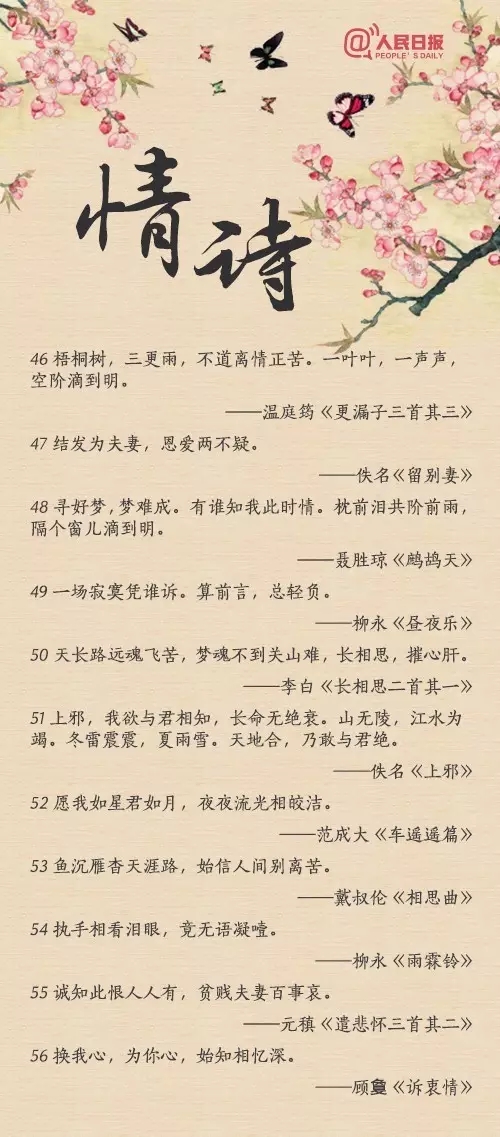 @人民日报
PEOPLE'S DAILY
情诗
46 梧桐树，三更雨，不道离情正苦。一叶叶，一声声，
空阶滴到明。
——温庭筠《更漏子三首其三》
47 结发为夫妻，恩爱两不疑。
——佚名《留别妻》
48 寻好梦，梦难成。有谁知我此时情。枕前泪共阶前雨，
隔个窗儿滴到明。
——聂胜琼《鹧鸪天》
49 一场寂寞凭谁诉。算前言，总轻负。
——柳永《昼夜乐》
50 天长路远魂飞苦，梦魂不到关山难，长相思，摧心肝。
——李白《长相思二首其一》
51 上邪，我欲与君相知，长命无绝衰。山无陵，江水为
竭。冬雷震震，夏雨雪。天地合，乃敢与君绝。
——佚名《上邪》
52 愿我如星君如月，夜夜流光相皎洁。
——范成大《车遥遥篇》
53 鱼沉雁杳天涯路，始信人间别离苦。
——戴叔伦《相思曲》
54 执手相看泪眼，竟无语凝噎。
——柳永《雨霖铃》
55 诚知此恨人人有，贫贱夫妻百事哀。
——元稹《遣悲怀三首其二》
56 换我心，为你心，始知相忆深。
——顾敻《诉衷情》